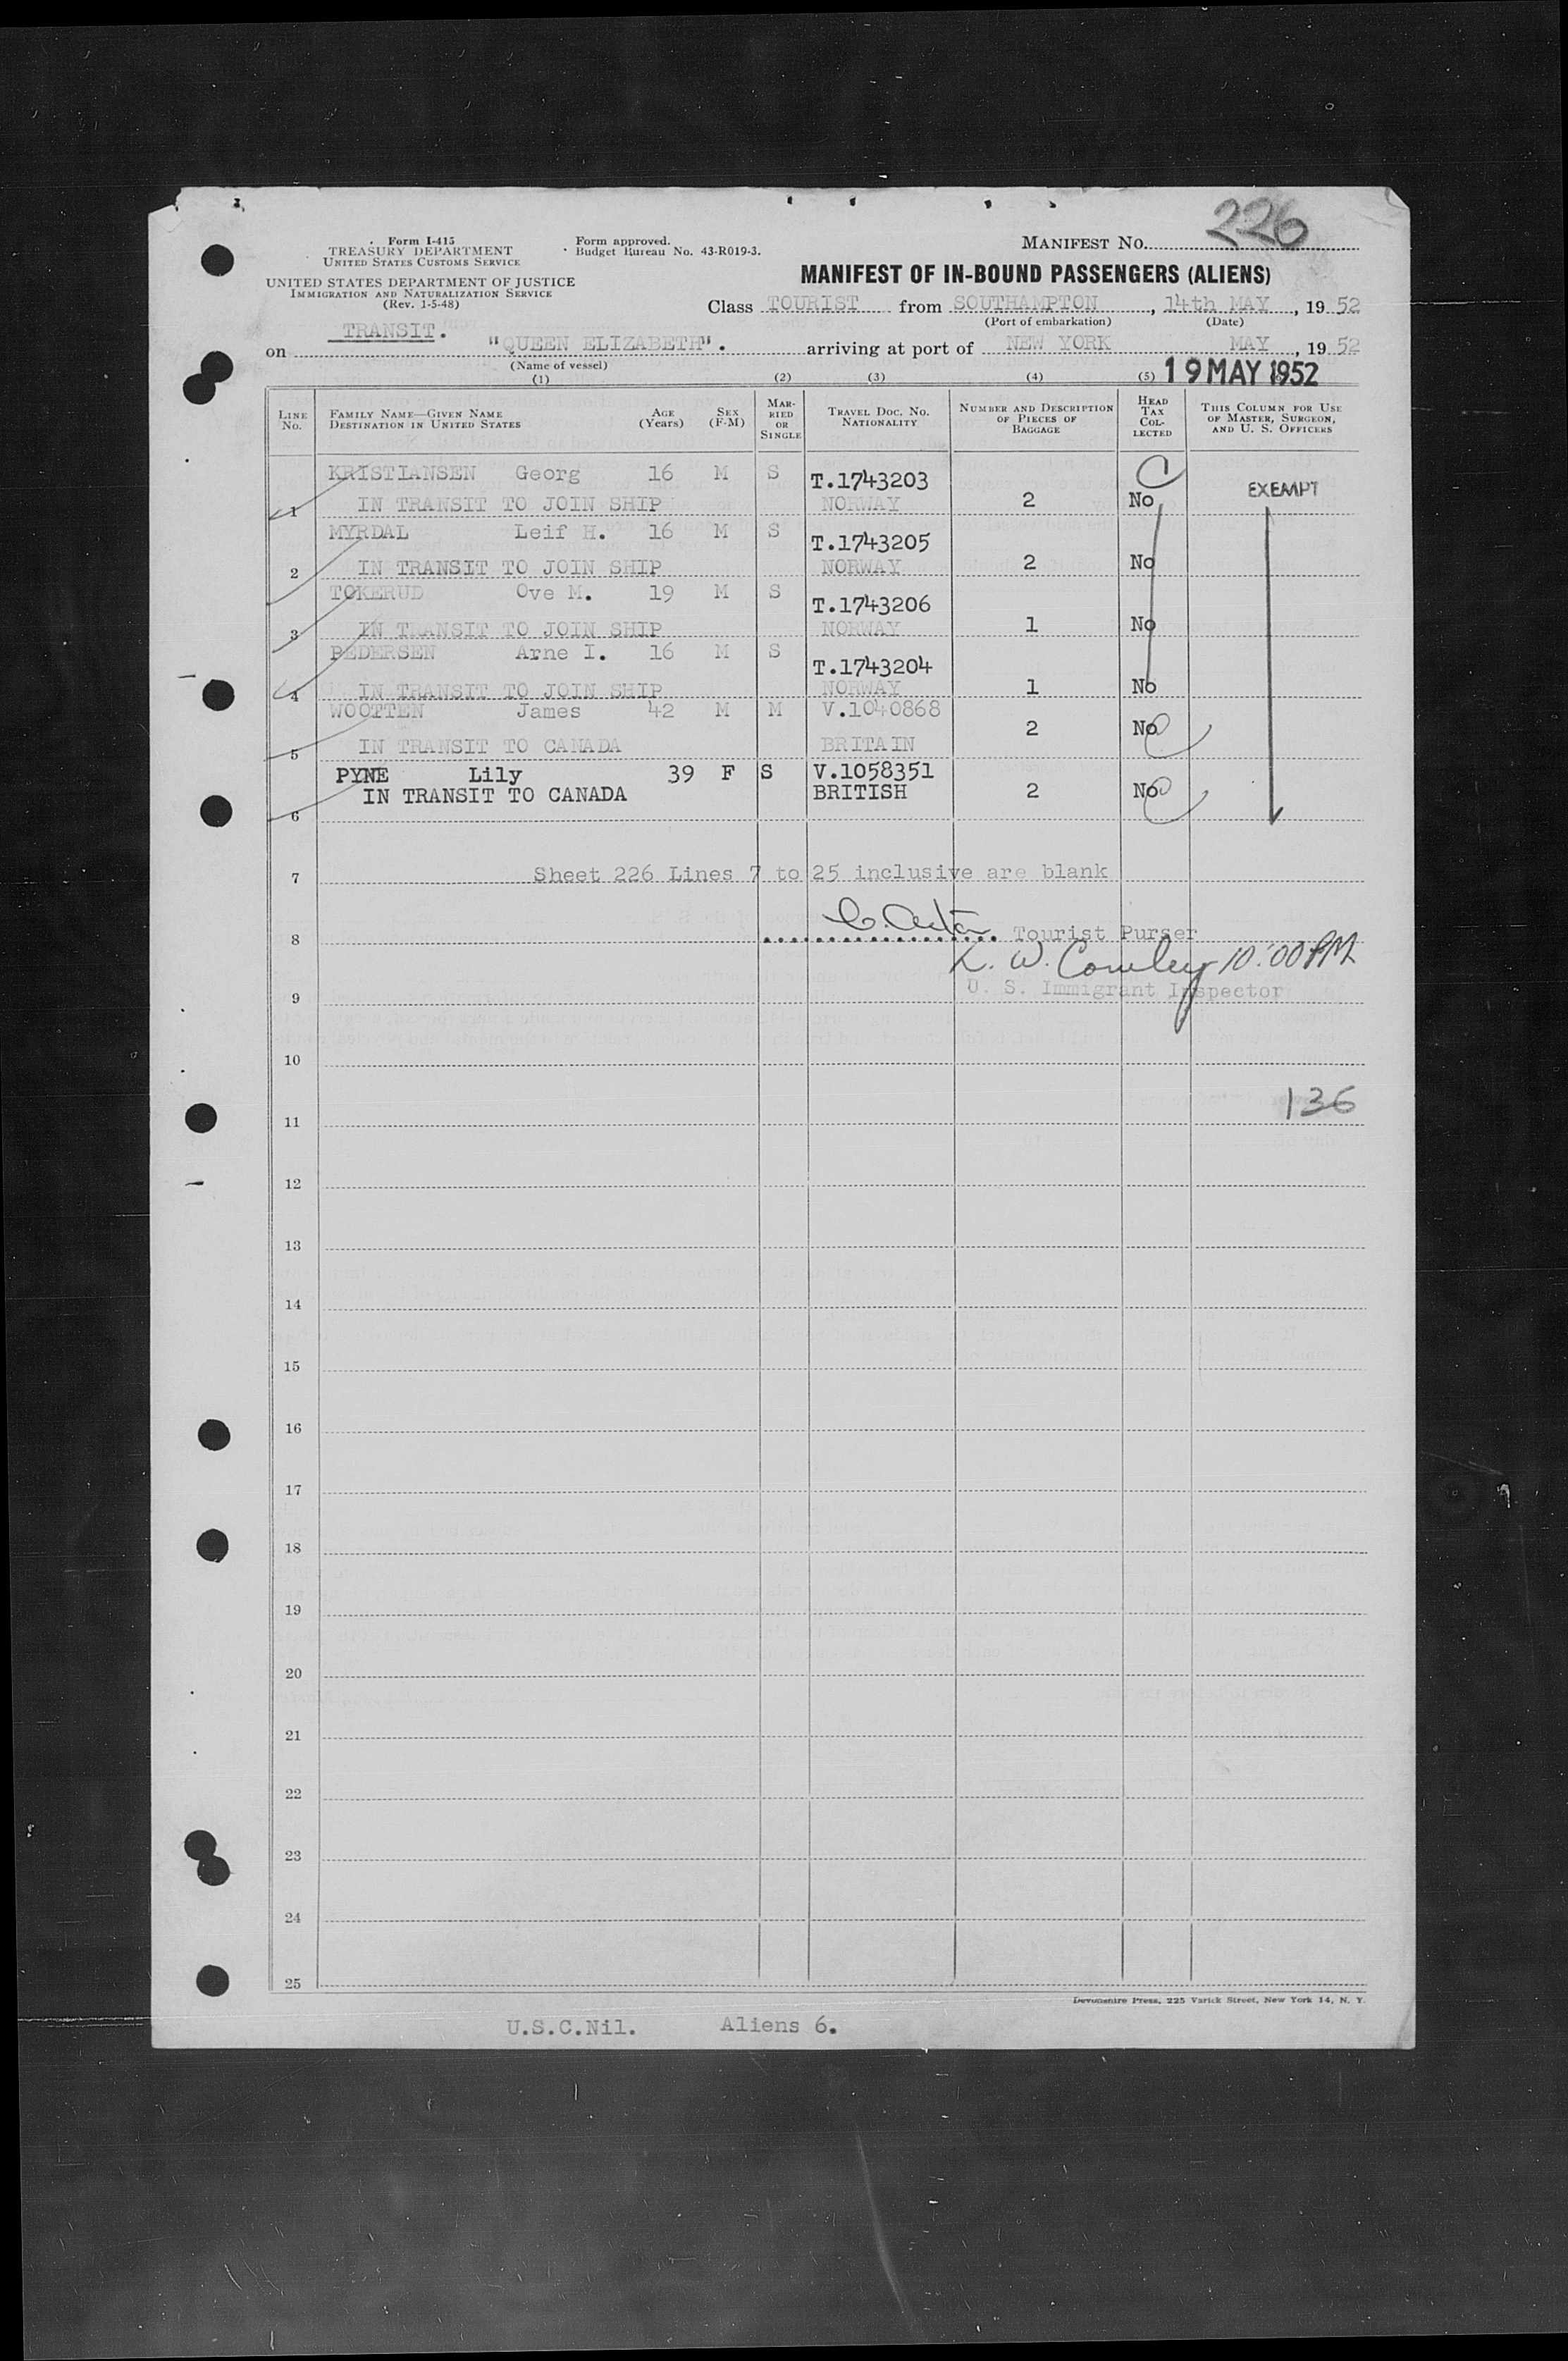 226
Form I-415
TREASURY DEPARTMENT
UNITED STATES CUSTOMS SERVICE
Form approved.
Budget Bureau No. 43-R019-3.
MANIFEST NO.
UNITED STATES DEPARTMENT OF JUSTICE
IMMIGRATION AND NATURALIZATION SERVICE
(Rev. 1-5-48)
MANIFEST OF IN-BOUND PASSENGERS (ALIENS)
Class TOURIST from SOUTHAMPTON, 14th MAY, 19 52
(Port of embarkation) (Date)
TRANSIT.
on "QUEEN ELIZABETH". arriving at port of NEW YORK MAY, 19 52
(Name of vessel)
19 MAY 1952
(1) (2) (3) (4) (5)
LINE NO. FAMILY NAME—GIVEN NAME DESTINATION IN UNITED STATES AGE (Years) SEX (F-M) MARRIED OR SINGLE TRAVEL DOC. NO. NATIONALITY NUMBER AND DESCRIPTION OF PIECES OF BAGGAGE HEAD TAX COLLECTED THIS COLUMN FOR USE OF MASTER, SURGEON, AND U. S. OFFICERS
KRISTIANSEN Georg 16 M S T.1743203 EXEMPT
1 IN TRANSIT TO JOIN SHIP NORWAY 2 No
MYRDAL Leif H. 16 M S T.1743205
2 IN TRANSIT TO JOIN SHIP NORWAY 2 No
TOKERUD Ove M. 19 M S T.1743206
3 IN TRANSIT TO JOIN SHIP NORWAY 1 No
PEDERSEN Arne I. 16 M S T.1743204
4 IN TRANSIT TO JOIN SHIP NORWAY 1 No
WOOTTEN James 42 M M V.1040868
5 IN TRANSIT TO CANADA BRITAIN 2 No
PYNE Lily 39 F S V.1058351
6 IN TRANSIT TO CANADA BRITISH 2 No
7 Sheet 226 Lines 7 to 25 inclusive are blank
8 Tourist Purser
L. W. Cowley 10:00 PM
9 U. S. Immigrant Inspector
10
11 136
12
13
14
15
16
17
18
19
20
21
22
23
24
25
Devonshire Press, 225 Varick Street, New York 14, N. Y.
U.S.C.Nil. Aliens 6.